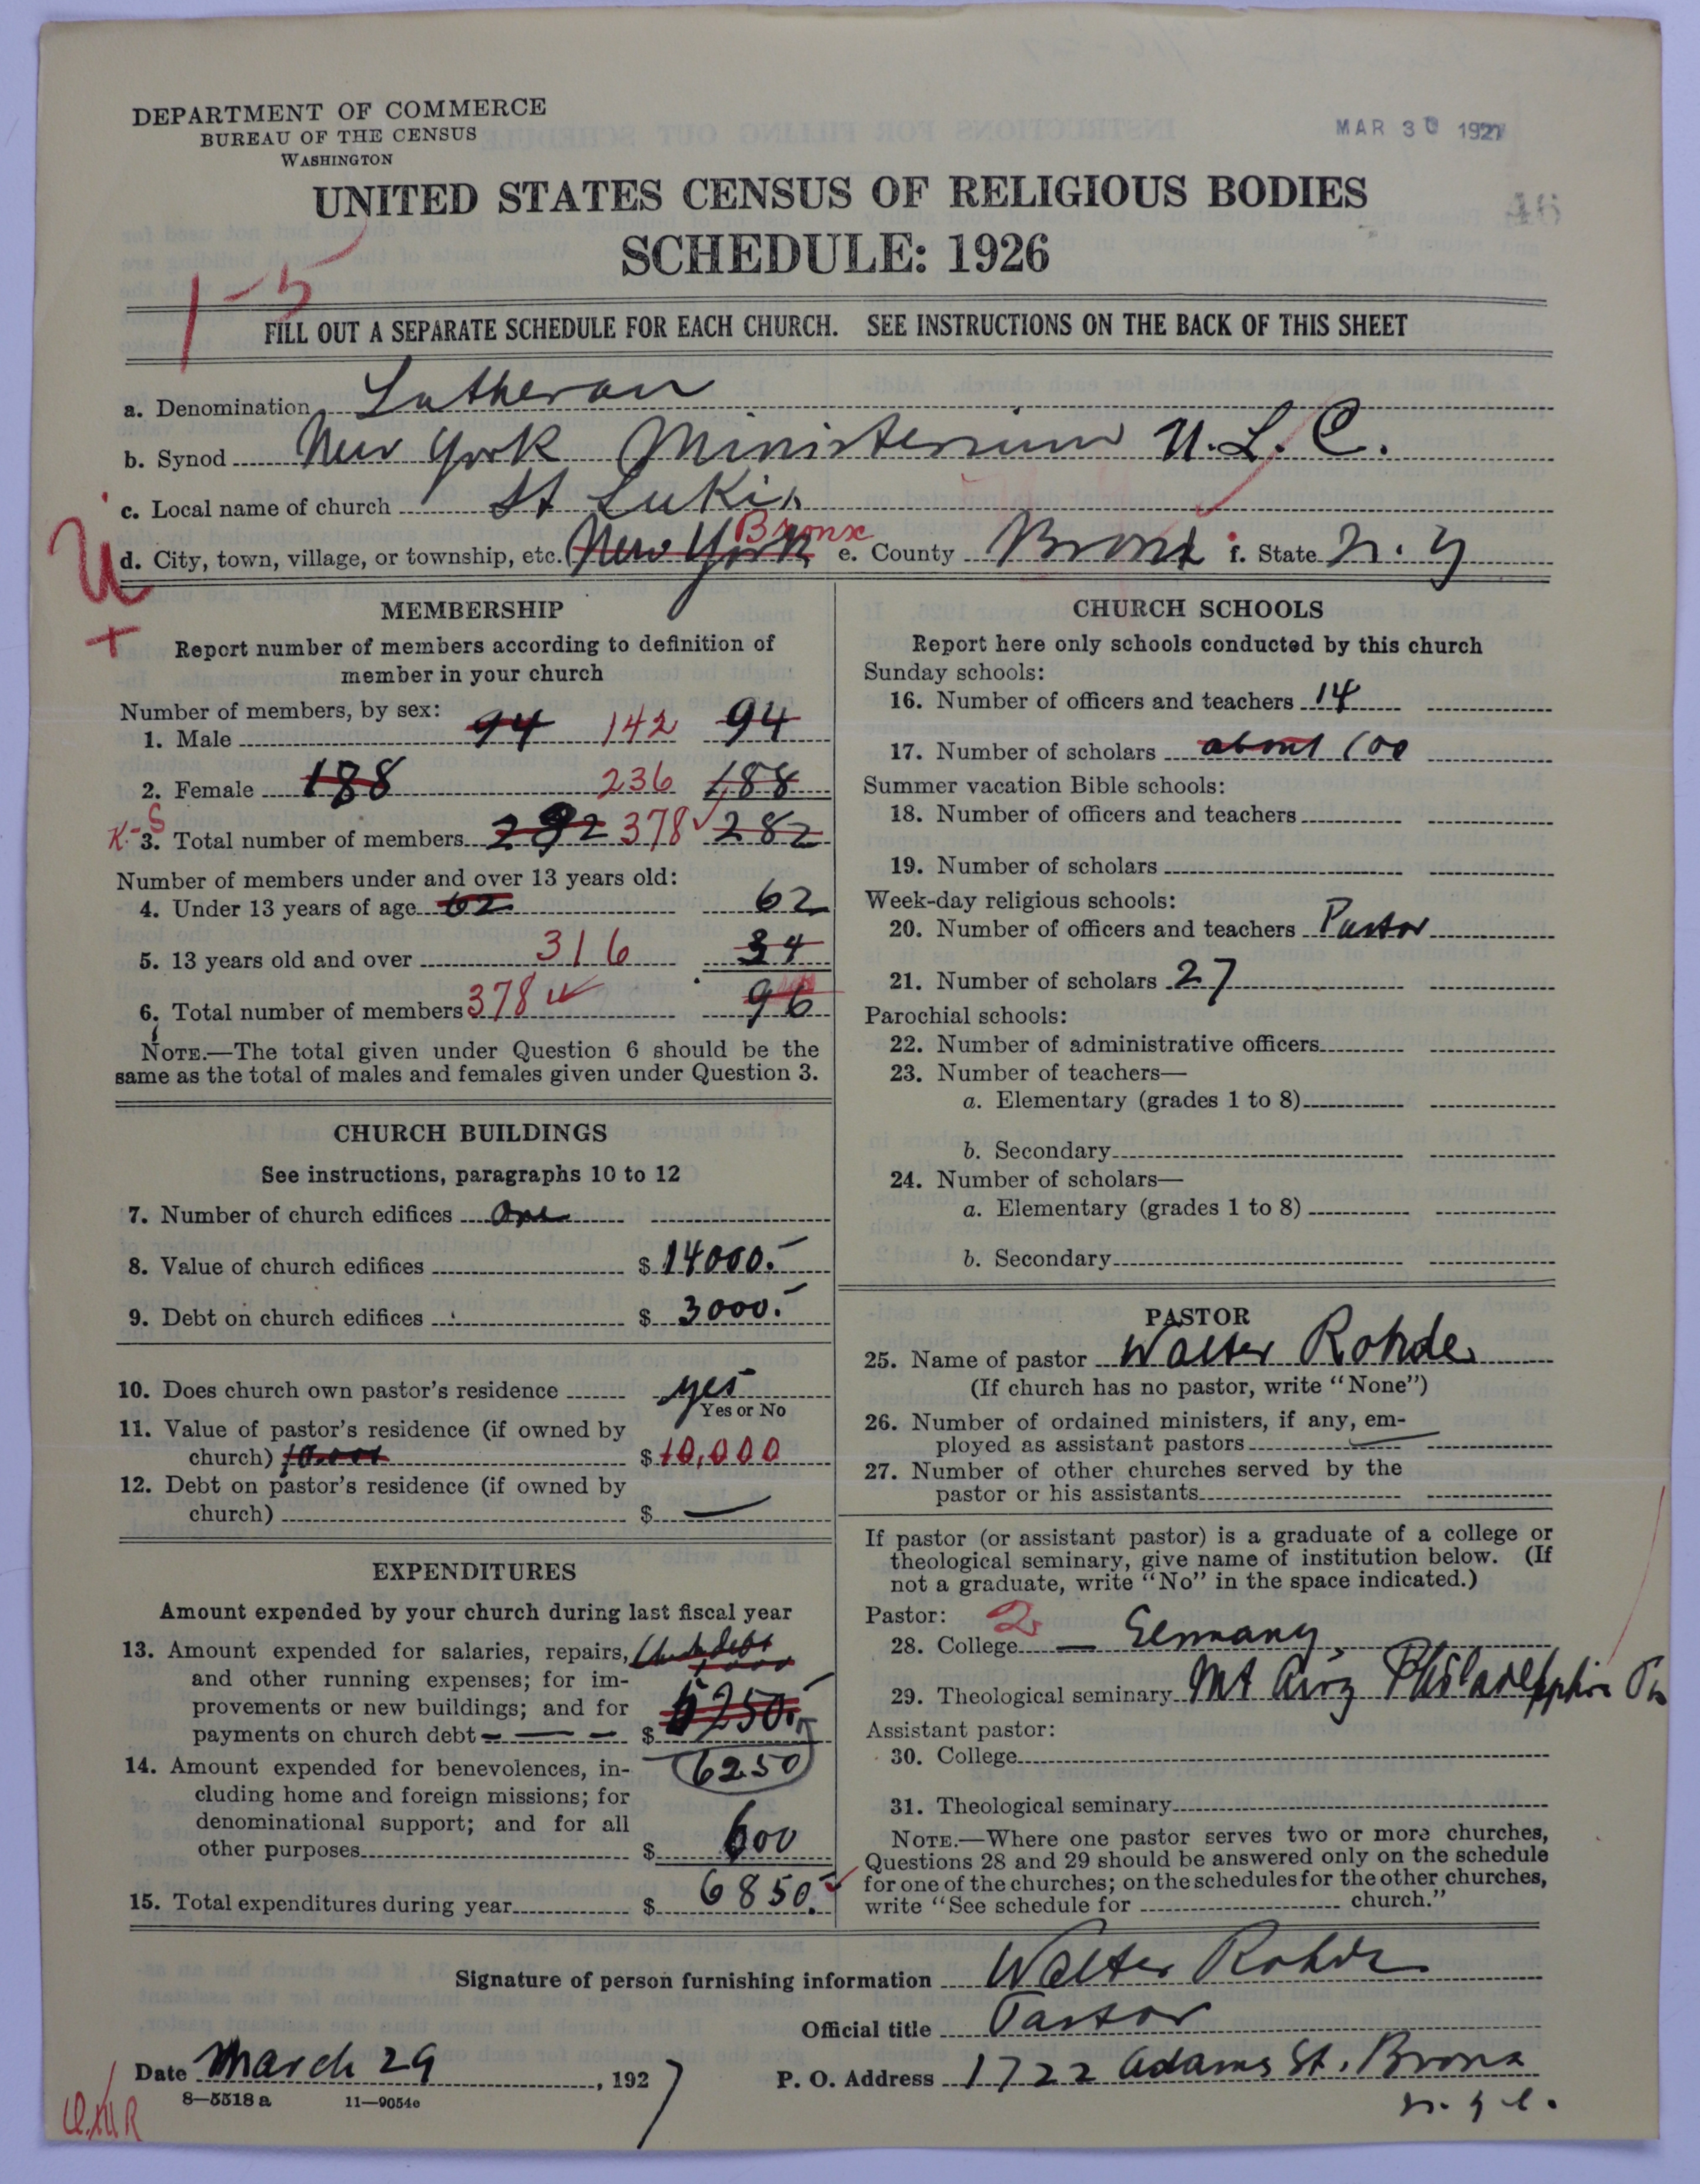 DEPARTMENT OF COMMERCE
BUREAU OF THE CENSUS
WASHINGTON
MAR 30 1927
UNITED STATES CENSUS OF RELIGIOUS BODIES
46
SCHEDULE: 1926
1-5
FILL OUT A SEPARATE SCHEDULE FOR EACH CHURCH. SEE INSTRUCTIONS ON THE BACK OF THIS SHEET
a. Denomination Lutheran
b. Synod New York Ministerium U.L.C.
c. Local name of church St Lukis
U
d. City, town, village, or township, etc. New York Bronx e. County Bronx f. State N.Y
+
MEMBERSHIP
Report number of members according to definition of
member in your church
Number of members, by sex:
1. Male 94 142 94
2. Female 188 236 188
K-S
3. Total number of members 282 378 282
Number of members under and over 13 years old:
4. Under 13 years of age 62 62
5. 13 years old and over 316 34
6. Total number of members 378 96
NOTE.—The total given under Question 6 should be the
same as the total of males and females given under Question 3.
CHURCH BUILDINGS
See instructions, paragraphs 10 to 12
7. Number of church edifices One
8. Value of church edifices $ 14000.-
9. Debt on church edifices $ 3000.-
10. Does church own pastor's residence yes
Yes or No
11. Value of pastor's residence (if owned by
church) 10.000 $ 10,000
12. Debt on pastor's residence (if owned by
church) $ —
EXPENDITURES
Amount expended by your church during last fiscal year
13. Amount expended for salaries, repairs,
and other running expenses; for im-
provements or new buildings; and for
payments on church debt $ 5250.-
6250
14. Amount expended for benevolences, in-
cluding home and foreign missions; for
denominational support; and for all
other purposes $ 600
15. Total expenditures during year $ 6850.-
CHURCH SCHOOLS
Report here only schools conducted by this church
Sunday schools:
16. Number of officers and teachers 14
17. Number of scholars about 100
Summer vacation Bible schools:
18. Number of officers and teachers
19. Number of scholars
Week-day religious schools:
20. Number of officers and teachers Pastor
21. Number of scholars 27
Parochial schools:
22. Number of administrative officers
23. Number of teachers—
a. Elementary (grades 1 to 8)
b. Secondary
24. Number of scholars—
a. Elementary (grades 1 to 8)
b. Secondary
PASTOR
25. Name of pastor Walter Rohde
(If church has no pastor, write "None")
26. Number of ordained ministers, if any, em-
ployed as assistant pastors —
27. Number of other churches served by the
pastor or his assistants
If pastor (or assistant pastor) is a graduate of a college or
theological seminary, give name of institution below. (If
not a graduate, write "No" in the space indicated.)
Pastor: 2
28. College — Germany
29. Theological seminary Mt Airy Philadelphia Pa
Assistant pastor:
30. College
31. Theological seminary
NOTE.—Where one pastor serves two or more churches,
Questions 28 and 29 should be answered only on the schedule
for one of the churches; on the schedules for the other churches,
write "See schedule for church."
Signature of person furnishing information Walter Rohde
Official title Pastor
Date March 29, 1927
P. O. Address 1722 Adams St. Bronx
N.Y.C.
8—5518 a 11—9054c